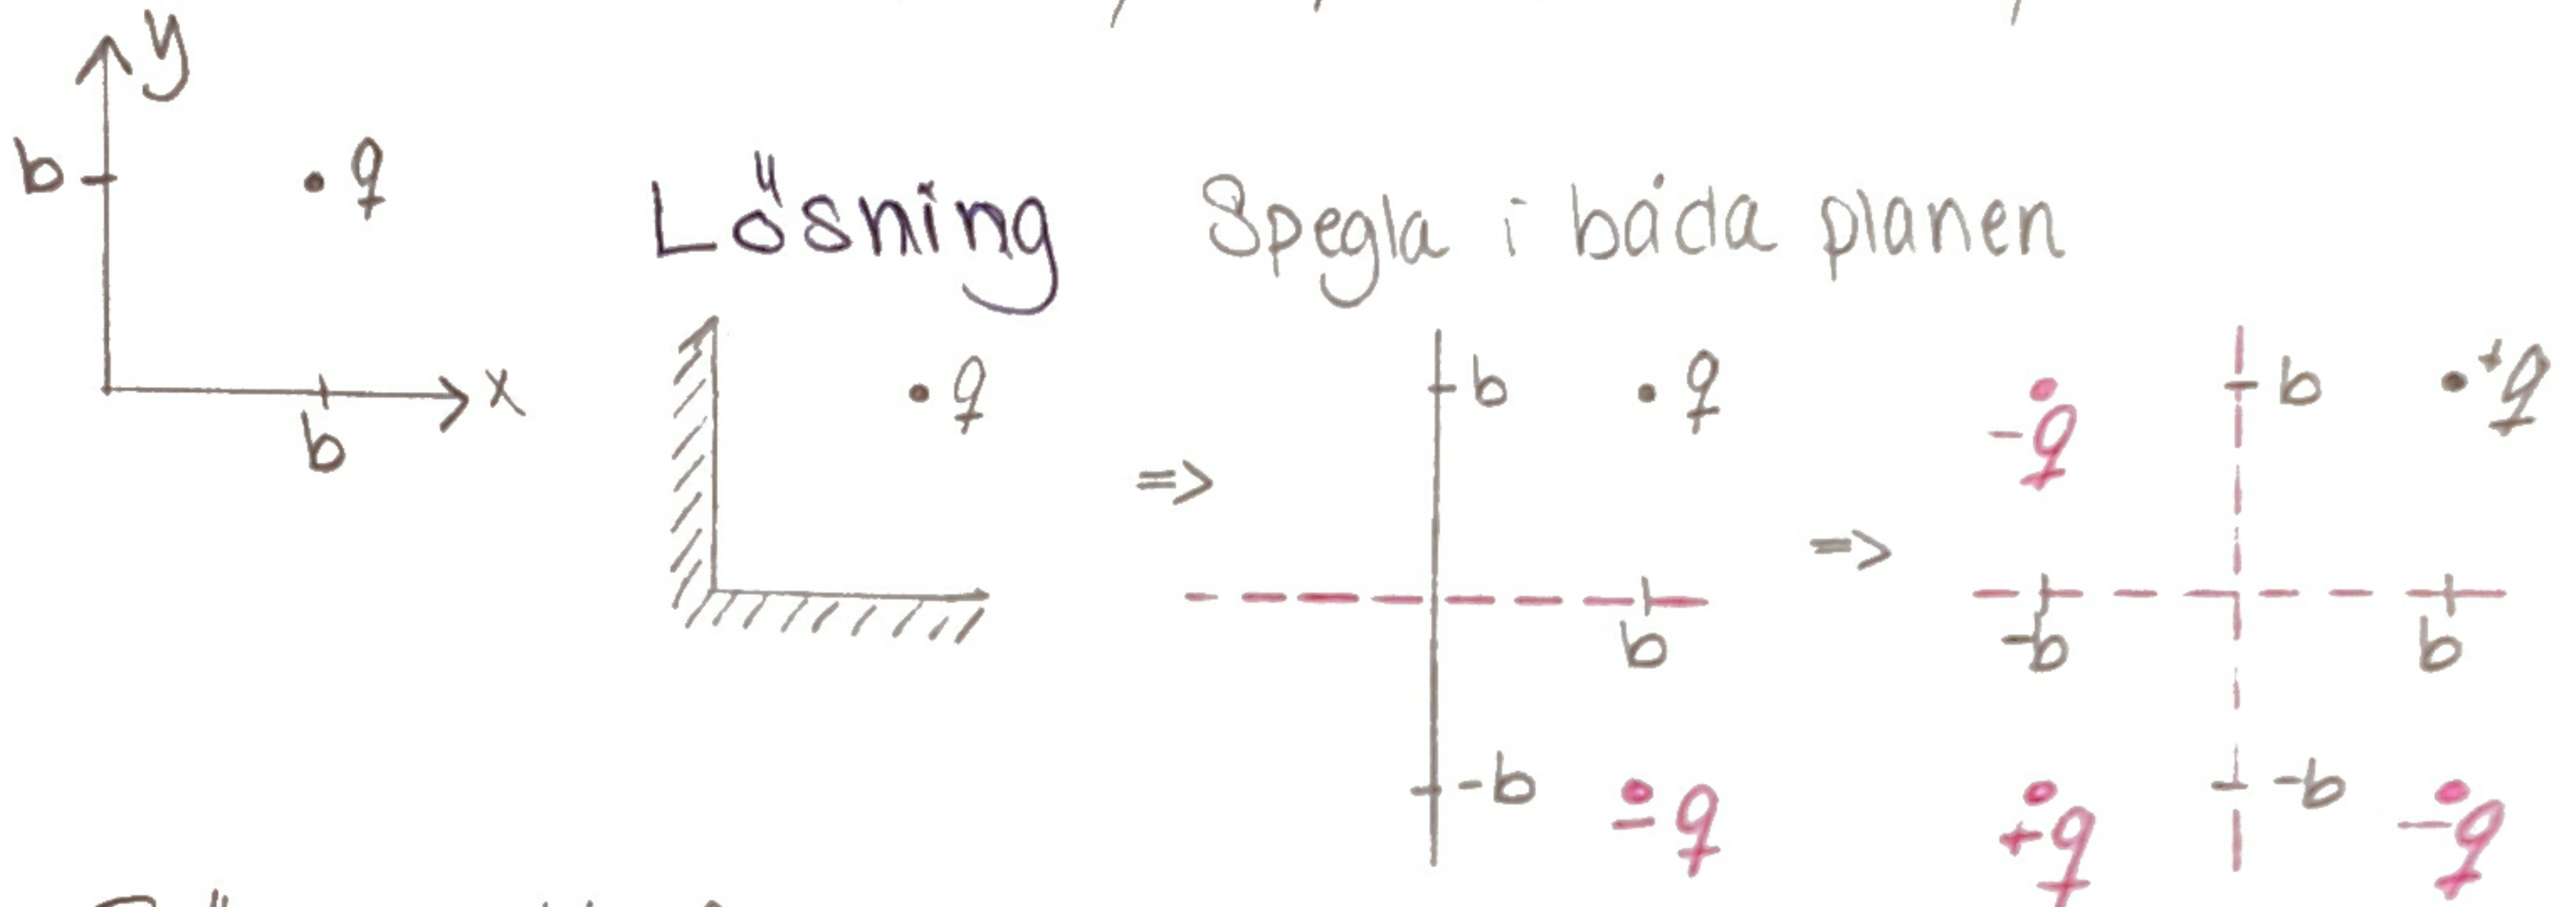 y
b
q
x
b
Lösning Spegla i båda planen
q
=>
b
q
b
-b
-q
=>
-q
b
+q
-b
b
+q
-b
-q